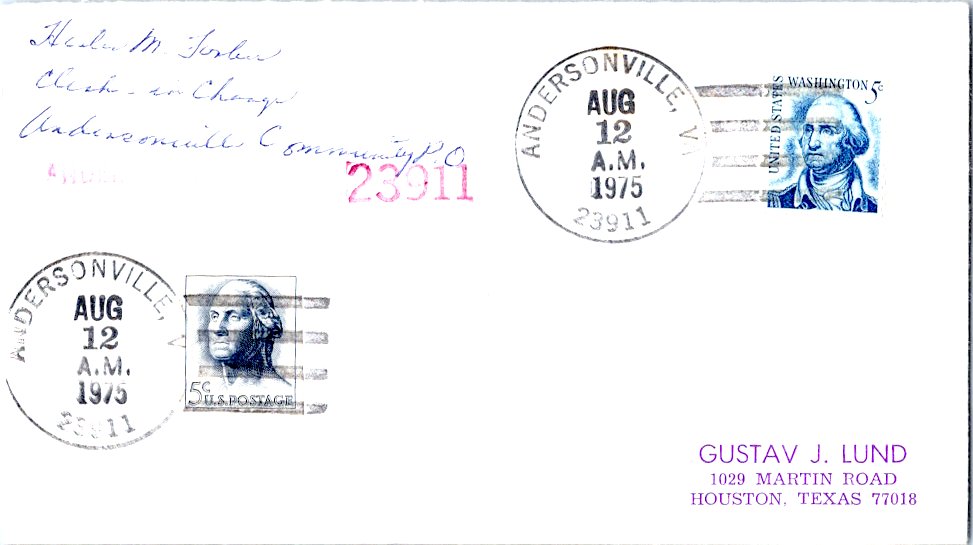 Clerk - in Charge
Andersonville Community P.O
23911
ANDERSONVILLE, V
AUG
12
A.M.
1975
23911
UNITED STATES
WASHINGTON 5c
ANDERSONVILLE, V
AUG
12
A.M.
1975
23911
5c
U.S. POSTAGE
GUSTAV J. LUND
1029 MARTIN ROAD
HOUSTON, TEXAS 77018